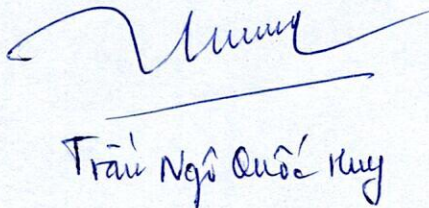 Trần Ngô Quốc Huy